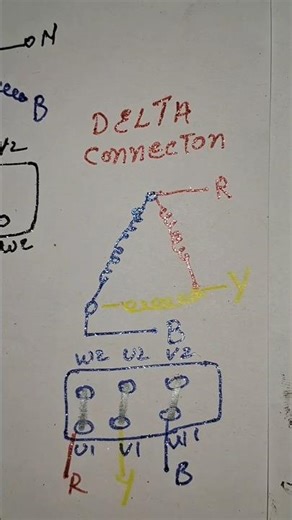 N
B
V2
W2
DELTA
CONNECTON
R
Y
B
W2 U2 V2
U1 V1 W1
R Y B